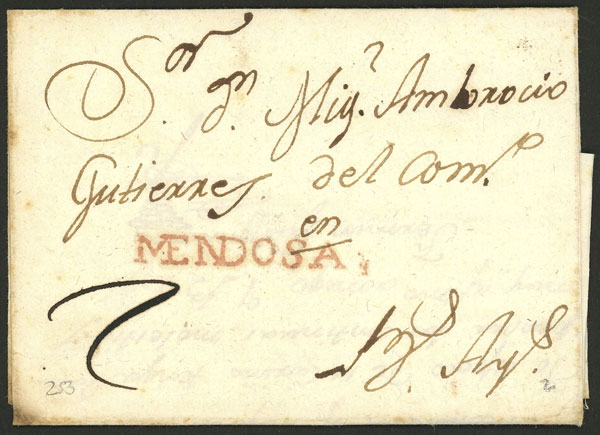 S.or d.n Mig.l Ambrocio
Gutierres del Com.o
en
MENDOSA
2
B.s Ay.s
253
2